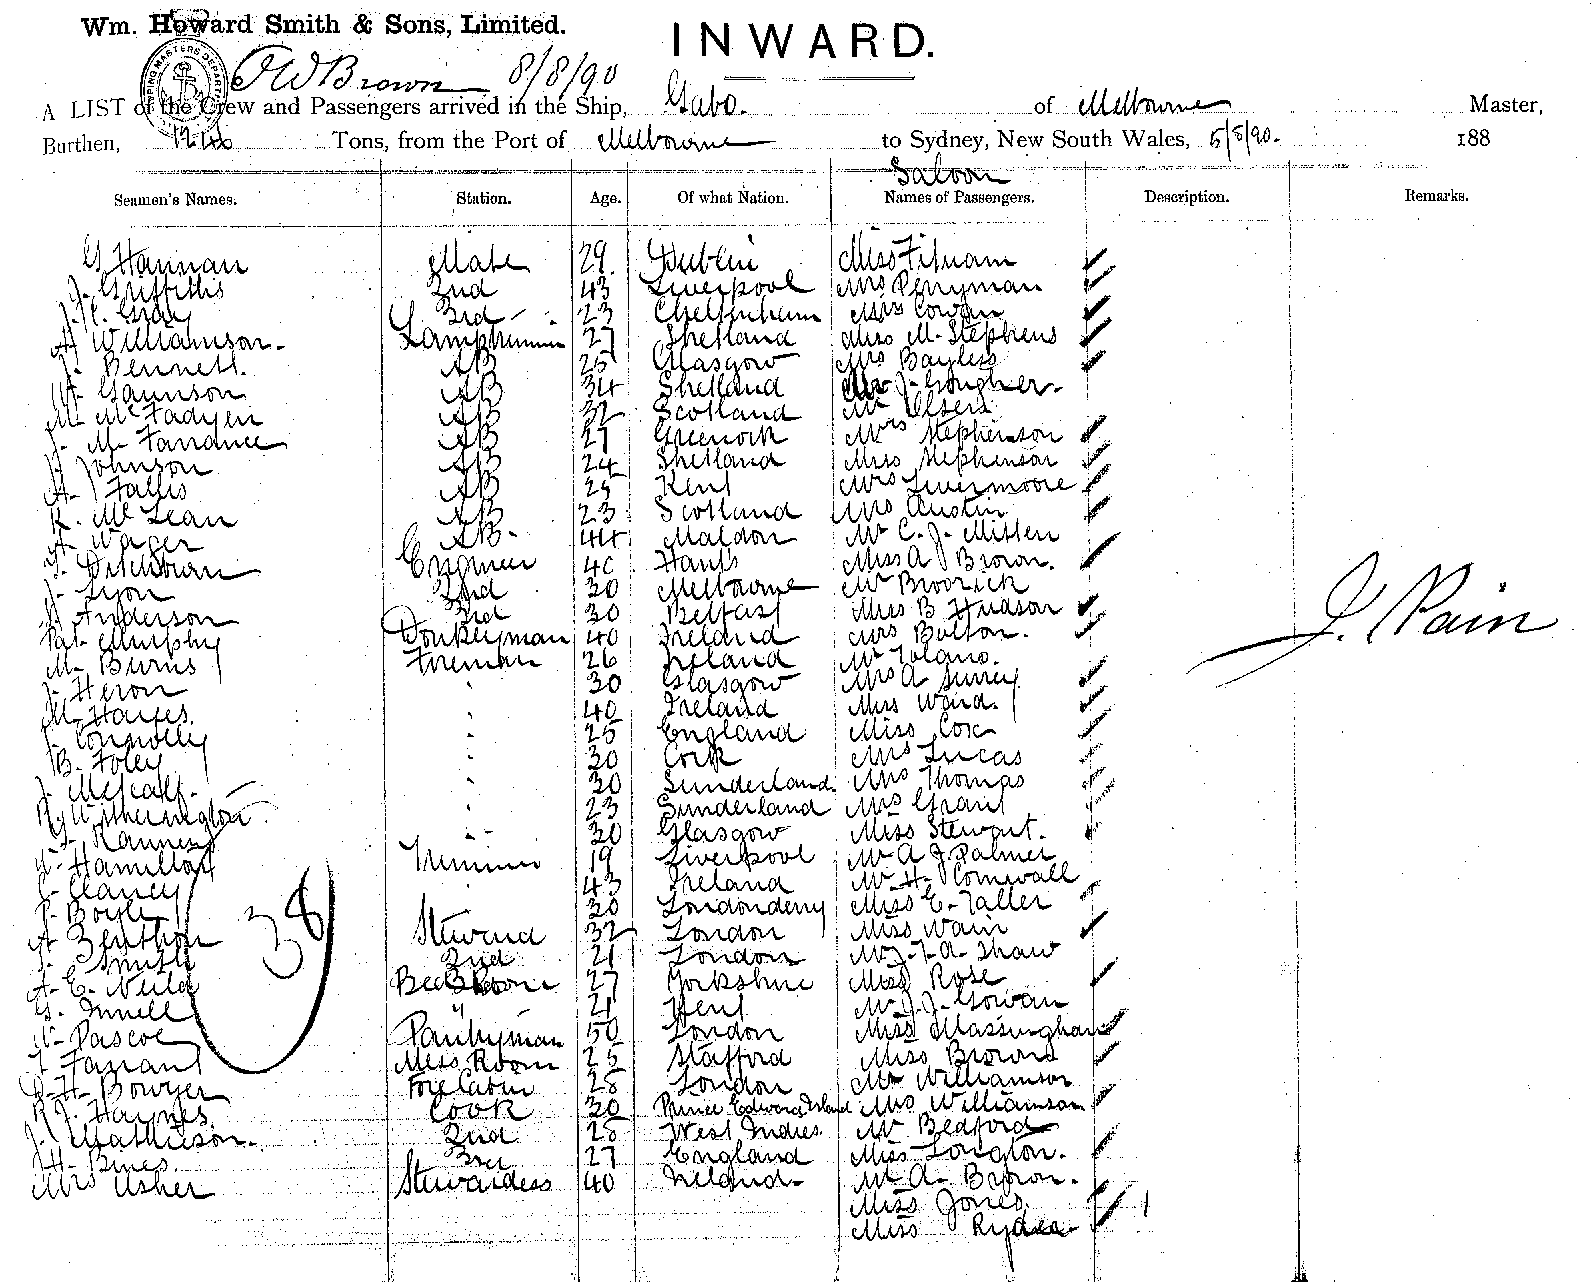 Wm. Howard Smith & Sons, Limited.
INWARD.
J W Brown 8/8/90
A LIST of the Crew and Passengers arrived in the Ship, Gabo. of Melbourne Master,
Burthen, Tons, from the Port of Melbourne to Sydney, New South Wales, 5/8/90. 188
Saloon
Seamen's Names. Station. Age. Of what Nation. Names of Passengers. Description. Remarks.
G Hannan Mate 29. Dublin Miss
J. Griffiths 2nd 43 Liverpool Mrs Perryman
Gray 3rd 23 Cheltenham Cowan
Williamson. 27 Shetland Miss M. Stephens
J. Bennett. AB 25 Glasgow Mrs Bayless
Gaunson AB 34 Shetland Mr J.
M. McFadyen AB 32 Scotland Mr
J. M. Farrance AB 27 Greenock Mrs Stephenson
Johnson AB 24 Shetland Miss Stephenson
A. AB 25 Kent Mrs Livermoore
R. McLean AB 23 Scotland Mrs Austin
Wager AB. 44 Maldon Mr C. J. Mitten
Ditchburn Engineer 40 Hants Miss A Brown.
J. Lyon 2nd 30 Melbourne Mr
Anderson 3rd 30 Belfast Miss B Hudson
Pat Murphy Donkeyman 40 Ireland Mrs Bolton.
M. Burns Fireman 26 Ireland Mr
J. Heron " 30 Glasgow Mrs A
M. Hayes. " 40 Ireland Miss Ward.
J. Connolly " 25 England Miss Cox
B. Foley " 30 Cork Mrs Lucas
J. Metcalf. " 30 Sunderland. Mrs Thomas
" 23 Sunderland Mrs Grant
" 30 Glasgow Miss Stewart.
Hamilton Trimmer 19 Liverpool Mr A J Palmer
Clancy 43 Ireland Mr H. Cornwall
P. Boyle 30 Londonderry Miss E.
A. Steward 32 London Miss
Smith 2nd 21 London Mr J. A. Shaw
A. E. Neild 27 Yorkshire Miss Rose
G. " 21 Kent Mr J. J. Gowan
Pascoe Pantryman 50 London Miss Massingham
Farrant Mess Room 25 Stafford Miss Browne
H. Bowyer Fore Cabin 28 London Mr Williamson
R. J. Haynes. Cook 30 Prince Edward Island Mrs Williamson
J. Mathieson. 2nd 28 West Indies Mr Bedford
H. 3rd 27 England Miss Longton.
Mrs Usher Stewardess 40 Ireland Mr A. Brown.
Miss Jones
Miss Ryder
38
J. Pain